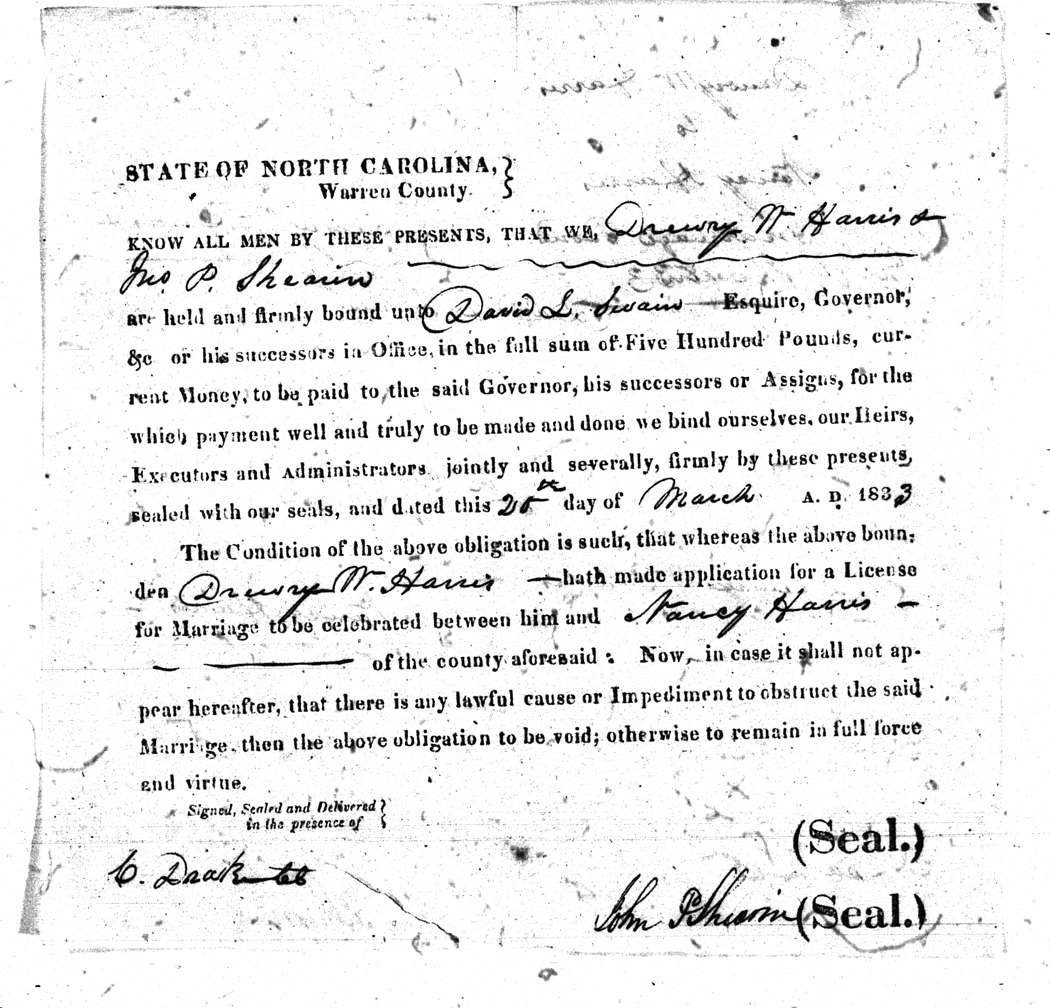 STATE OF NORTH CAROLINA,
Warren County.
KNOW ALL MEN BY THESE PRESENTS, THAT WE, Drewry W Harris &
Jno. P. Shearin
are held and firmly bound unto David L. Swain Esquire, Governor,
&c or his successors in Office, in the full sum of Five Hundred Pounds, cur-
rent Money, to be paid to the said Governor, his successors or Assigns, for the
which payment well and truly to be made and done we bind ourselves, our Heirs,
Executors and Administrators jointly and severally, firmly by these presents,
sealed with our seals, and dated this 25th day of March A. D. 1833
The Condition of the above obligation is such, that whereas the above boun-
den Drewry W. Harris hath made application for a License
for Marriage to be celebrated between him and Nancy Harris
of the county aforesaid: Now, in case it shall not ap-
pear hereafter, that there is any lawful cause or Impediment to obstruct the said
Marriage, then the above obligation to be void; otherwise to remain in full force
and virtue.
Signed, Sealed and Delivered
in the presence of
(Seal.)
C. Drake
John P Shearin (Seal.)